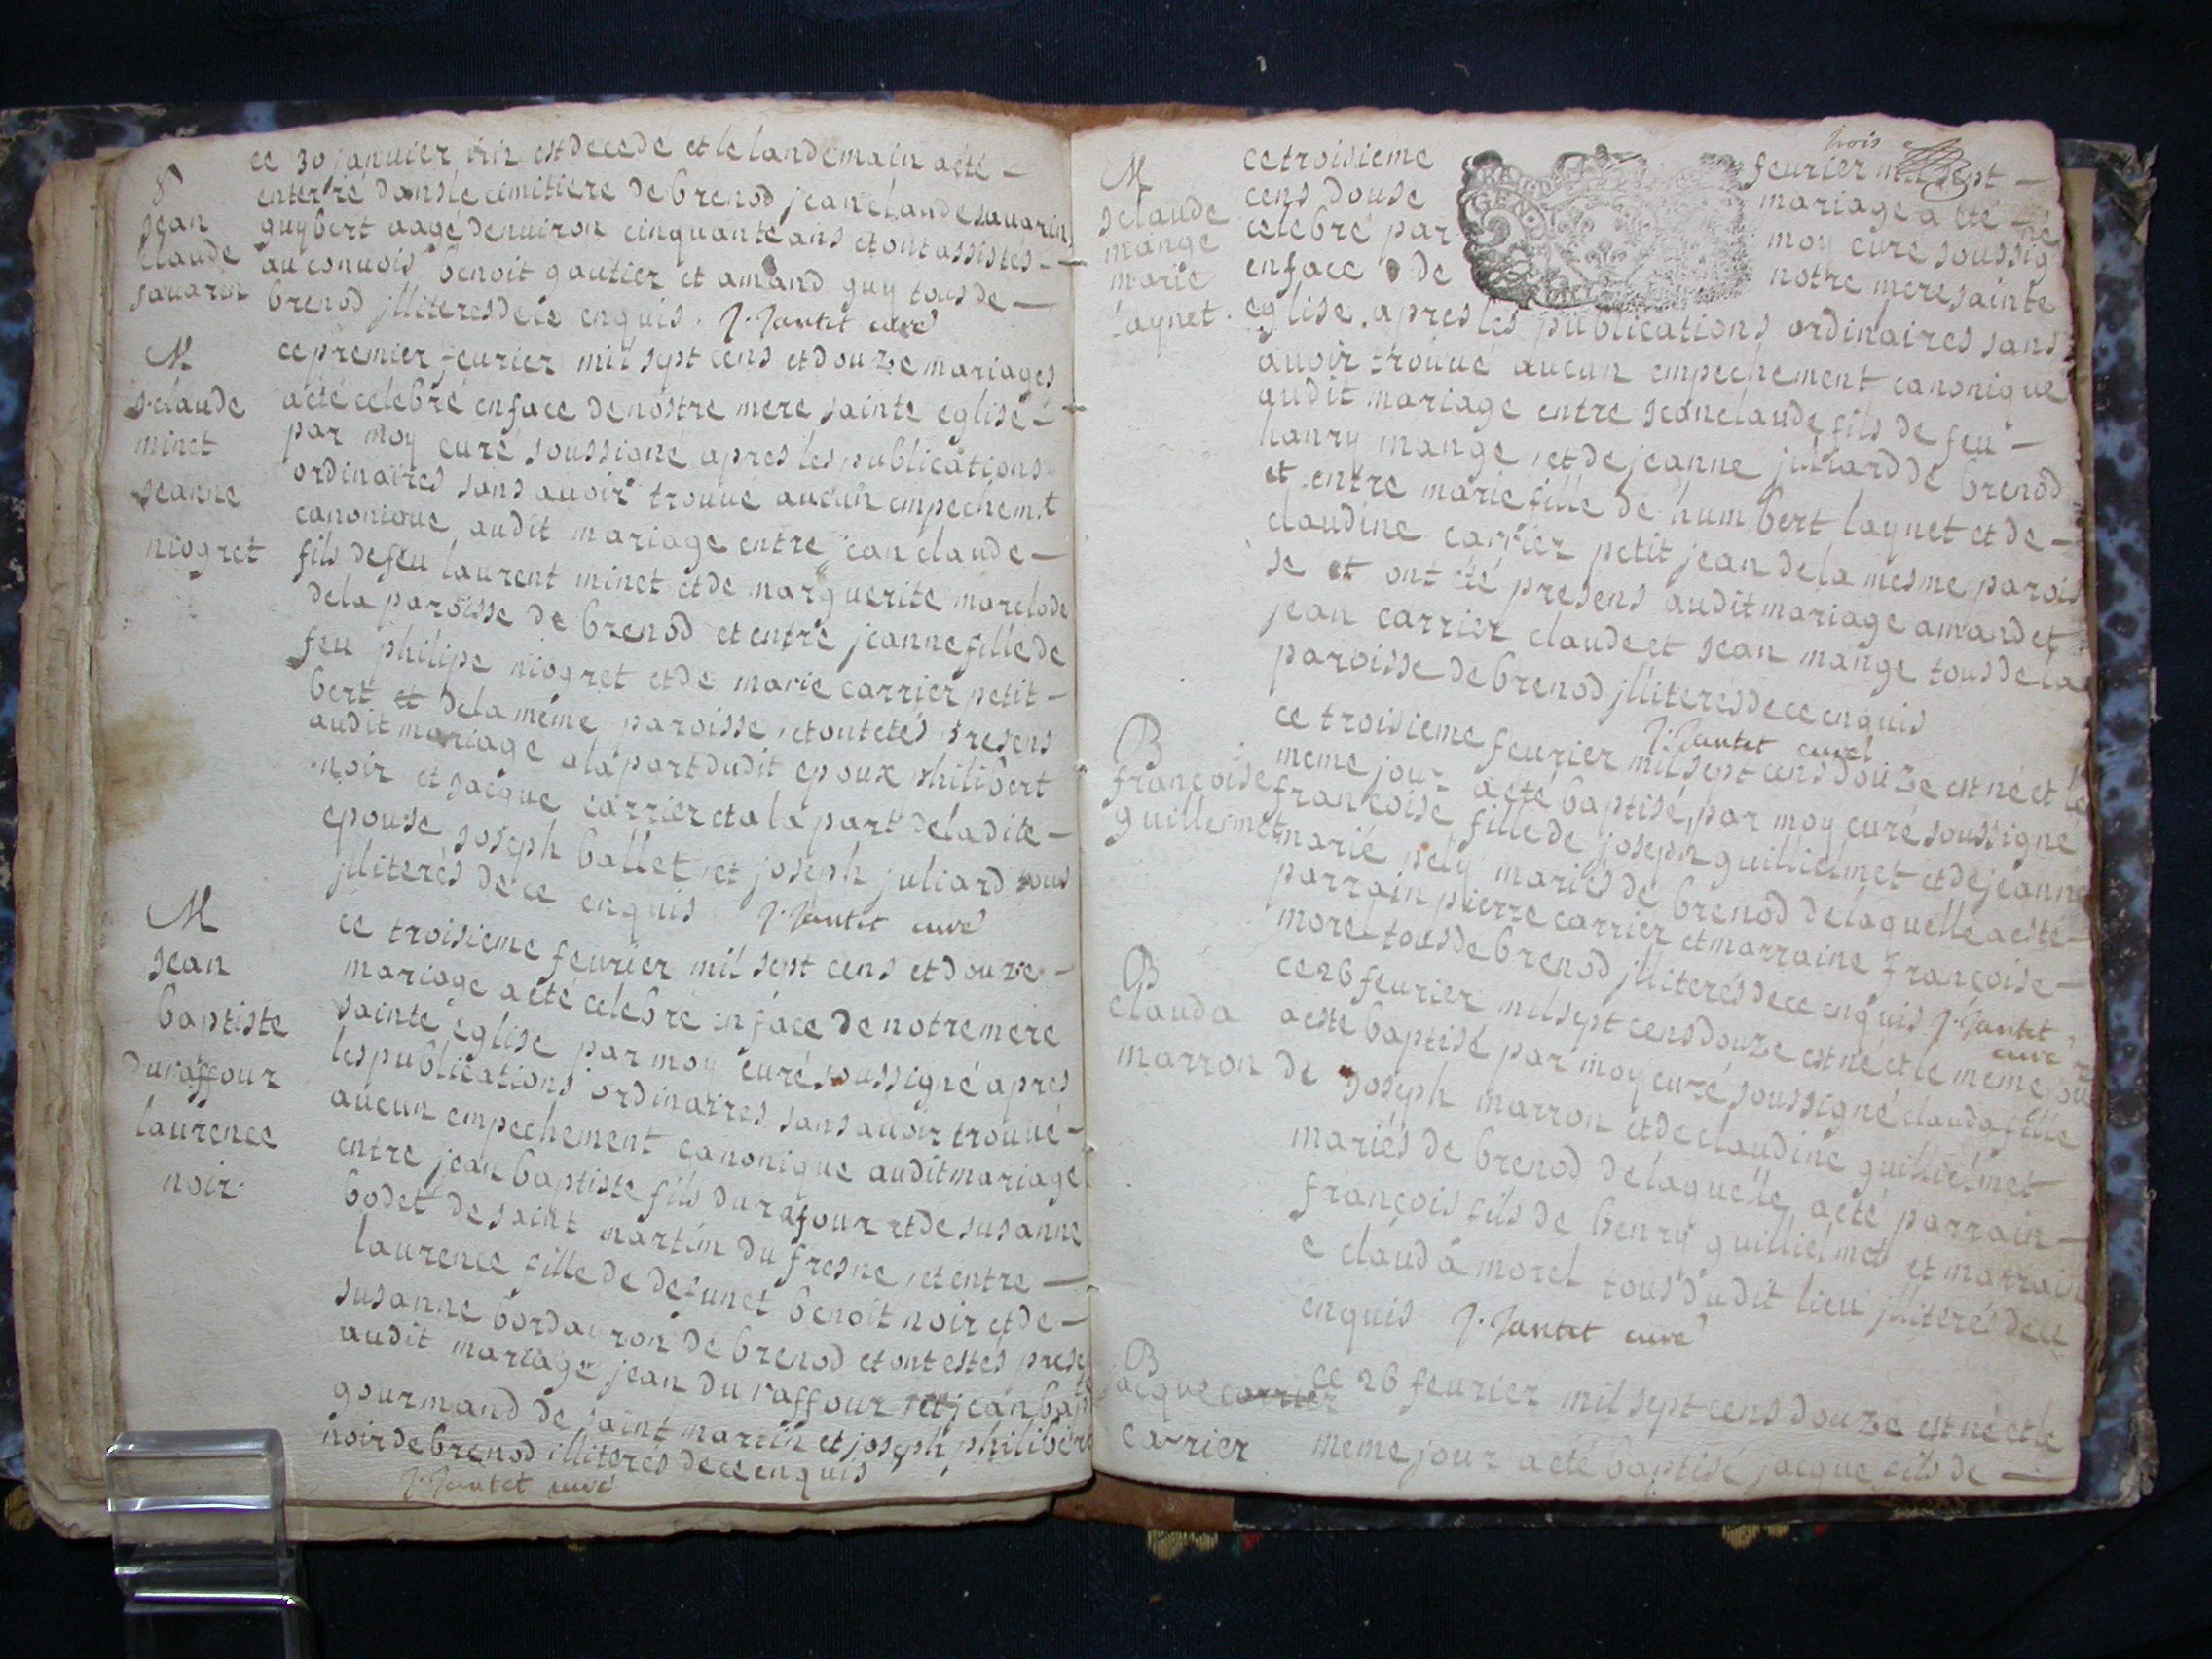 8
Jean
claude
savarin
ce 30 januier est decedé et le landemain a eté —
enterré dans le cimitiere de brenod jean claude savarin
guybert aagé denuiron cinquante ans et ont assistés —
au conuois benoit gautier et amand guy tous de —
brenod jlliteres de ce enquis . J. Jantet curé
M
j. claude
minet
jeanne
niogret
ce premier feurier mil sept cens et douze mariages
a eté celebré en face de nostre mere sainte eglise —
par moy curé soussigné apres les publications
ordinaires sans auoir trouué aucun empechem.t
canonique audit mariage entre jean claude —
fils de feu laurent minet et de marguerite marclode
de la paroisse de brenod et entre jeanne fille de
feu philipe niogret et de marie carrier petit —
bert et de la même paroisse , et ont etés presens
audit mariage a la part dudit epoux philibert
noir et jacque carrier et a la part de ladite —
epouse joseph ballet , et joseph juliard tous
jlliterés de ce enquis J. Jantet curé
M
Jean
baptiste
duraffour
laurence
noir
ce troisieme feurier mil sept cens et douze —
mariage a eté celebré en face de notre mere
sainte eglise par moy curé soussigné apres
les publications ordinaires sans auoir trouué —
aucun empechement canonique audit mariage
entre jean baptiste fils durafour et de susanne
bodet de saint martin du fresne , et entre —
laurence fille de defunct benoit noir et de —
susanne bordauron de brenod et ont estés prese
audit mariage jean duraffour et jean bap
gourmand de saint martin et joseph philibert
noir de brenod illiterés de ce enquis
J. Jantet curé
trois
M
j claude
mange
marie
laynet .
ce troisieme feurier mil sept —
cens douse mariage a eté —
celebré par moy curé soussig né
en face de notre mere sainte
eglise , apres les publications ordinaires sans
auoir trouué aucun empechement canonique
audit mariage entre jean claude fils de feu —
hanry mange , et de jeanne juliard de brenod
et entre marie fille de humbert laynet et de —
claudine carrier petit jean de la mesme parois
se et ont été presens audit mariage amand et
jean carrier claude et jean mange tous de la
paroisse de brenod jlliterés de ce enquis
J. Jantet curé
B
françoise
guillermet
ce troisieme feurier mil sept cens douze est né et le
meme jour a eté baptisé , par moy curé soussigné
françoise fille de joseph guillielmet et de jeanne
marie pely mariés de brenod de laquelle a esté —
parrain pierre carrier et marraine françoise —
morel tous de brenod jlliterés de ce enquis J. Jantet
curé
B
clauda
marron
ce 26 feurier mil sept cens douze est né et le meme jour
a esté baptisé par moy curé soussigné clauda fille
de joseph marron et de claudine guillielmet
mariés de brenod de laquelle a eté parrain —
françois fils de henry guillielmet et marrain
e clauda morel tous dudit lieu jlliterés de ce
enquis J. Jantet curé
B
jacque carrier
carrier
ce 26 feurier mil sept cens douze est né et le
meme jour a eté baptisé jacque fils de —